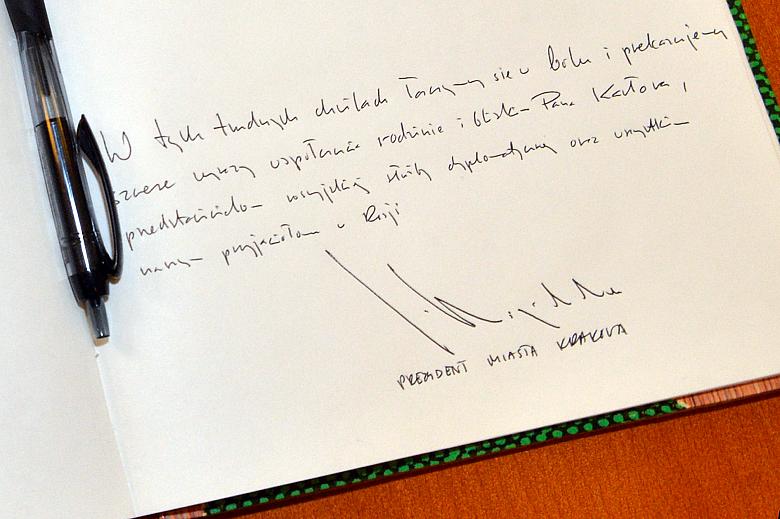 W tych trudnych chwilach łączymy się w bólu i przekazujemy
szczere wyrazy współczucia rodzinie i bliskim Pana Karłova,
przedstawicielom rosyjskiej służby dyplomatycznej oraz wszystkim
naszym przyjaciołom w Rosji
PREZYDENT MIASTA KRAKOWA